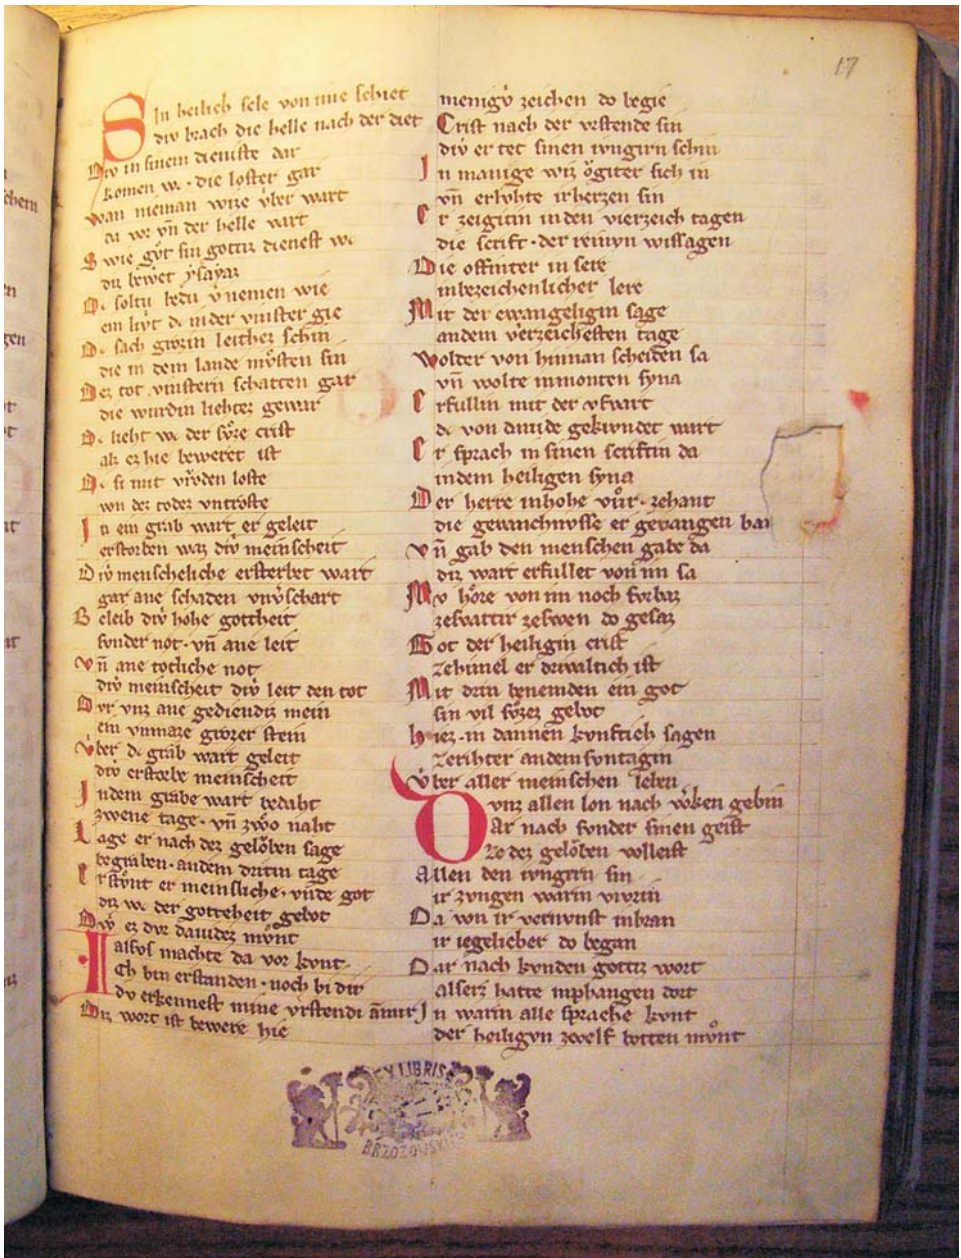 17
SIn heilich sele von inie schiet
div brach die helle nach der diet
Div in sinem dieniste dar
komen w. · die loster gar
wan nieman wize vͥber wart
da wc vn̄ der helle wart
Swie gvͦt sin gottiz dienest wc
diz bewet ysayaz
Dc soltu bedu v̓nemen wie
ein livͥt dc in der vinster gie
Dc sach grozin leithez schin
die in dem lande mvͦsten sin
Dez tot vinstern schatten gar
die wurdin liehtez gewar
Dc lieht wc der svͤze crist
alz ez hie beweret ist
Dc si mit vrͦvden loste
von dez todez vntroste
In ein grab wart er geleit
erstorben waz divͥ meinscheit
Divͥ menscheliche ersterbet wart
gar ane schaden vnv̓schart
Beleib divͥ hohe gottheit
sunder not · vn̄ ane leit
vn̄ ane totliche not
divͥ meinscheit divͥ leit den tot
Dvr vnz ane gediendiz mein
ein vnmaze grozer stein
vͥber dc grab wart geleit
divͥ erstorbe meinscheit
Indem grabe wart bedaht
zwene tage · vn̄ zwo naht
Lage er nach dez gelͦoben sage
begraben · andem dritin tage
Erstvͦnt er meinsliche · vnde got
diz wc der gotteheit gebot
Dvͥ ez dvr dauidez mvͦnt
Ialsvs machte da vor kvnt ·
Ch bin erstanden · noch bi dir
dv erkennest mine vrstendi an̄ mir
Diz wort ist bewere hie
menigv̓ zeichen do begie
Crist nach der vrstende sin
divͥ er tet sinen ivngirn schin
In manige wiz ͦogiter sich in
vn̄ erlvhte ir herzen sin
Er zeigitin inden vierzech tagen
die scrift · der reinyn wissagen
Die offinter in sere
inbezeichenlicher lere
Mit der ewangeligin sage
andem vierzeichesten tage
wolder von hinnan scheiden sa
vn̄ wolte inmonten syna
Erfullin mit der vfwart
dc von dauide gekvndet wart
Er sprach in sinen scriftin da
indem heiligen syna
Der herre inhohe vͦvr · zehant
die gevanchnvsse er gevangen bant
vn̄ gab den menschen gabe da
diz wart erfullet von im sa
Nv hͦore von im noch fvrbaz
zesvattir zeswen do gesaz
Got der heiligin crist
zehimel er driualtich ist
Mit drin benemden ein got
sin vil svͤzez gebot
hiez · in dannen kvnftich sagen
zerihter andemsvntagin
vͥber aller meinschen leben
vnz allen lon nach wͥken gebin
DAr nach sonder sinen geist
Zo dez gelͦoben volleist
Allen den ivngirn sin
ir zvngen warin vivrin
Da von ir vernvnst inbran
ir iegelicher do began
Dar nach kvnden gottiz wort
alserz hatte inphangen dort
In warin alle sprache kvnt
der heiligvn zwelf botten mvͦnt
EX LIBRIS
BRZOZOWSKI